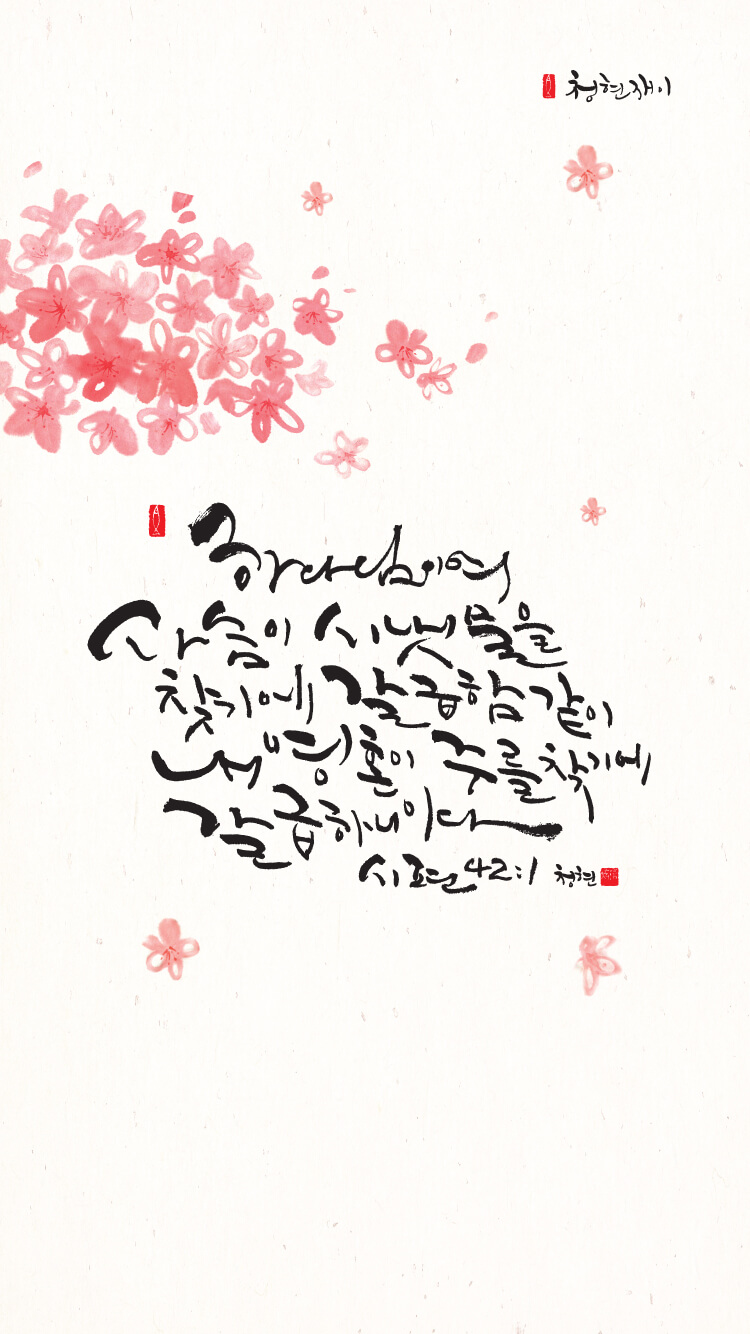 청현재이
하나님이여
사슴이 시냇물을
찾기에 갈급함 같이
내 영혼이 주를 찾기에
갈급하니이다
시편 42:1 청현